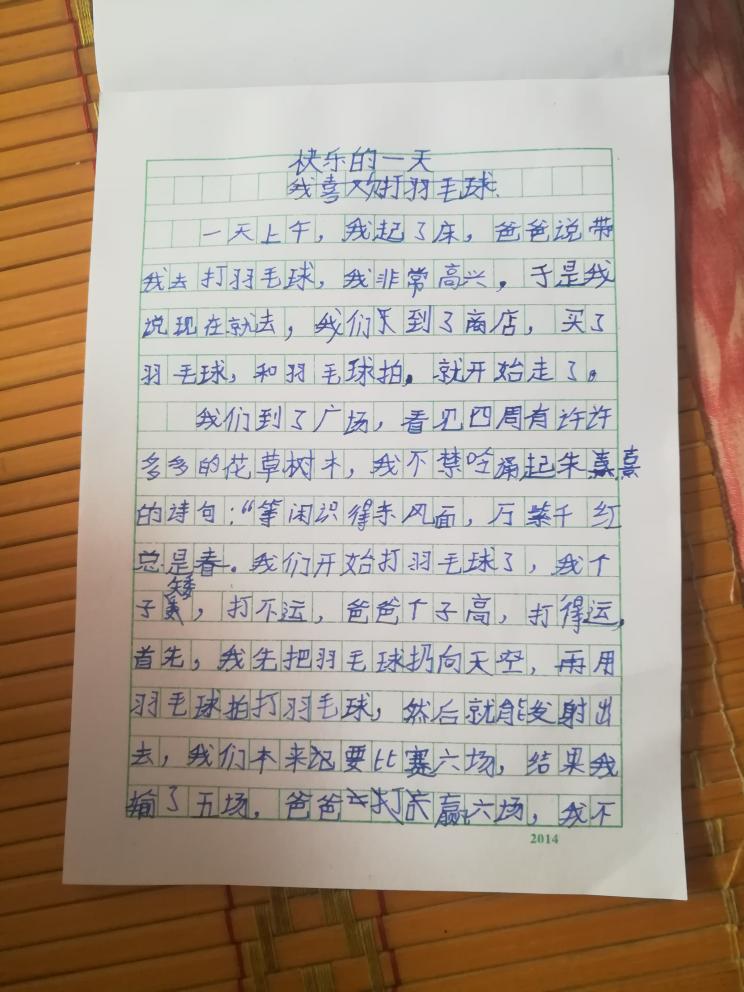 快乐的一天
我喜欢打羽毛球.
一天上午，我起了床，爸爸说带
我去打羽毛球，我非常高兴，于是我
说现在就去，我们天到了商店，买了
羽毛球，和羽毛球拍。就开始走了。
我们到了广场，看见四周有许许
多多的花草树木，我不禁吟诵起朱熹熹
的诗句：“等闲识得东风面，万紫千红
总是春。我们开始打羽毛球了，我个
子矮，打不运，爸爸个子高，打得运，
首先，我先把羽毛球扔向天空，再用
羽毛球拍打羽毛球，然后就能发射出
去，我们本来说要比赛六场，结果我
输了五场，爸爸打赢六场，我不
2014